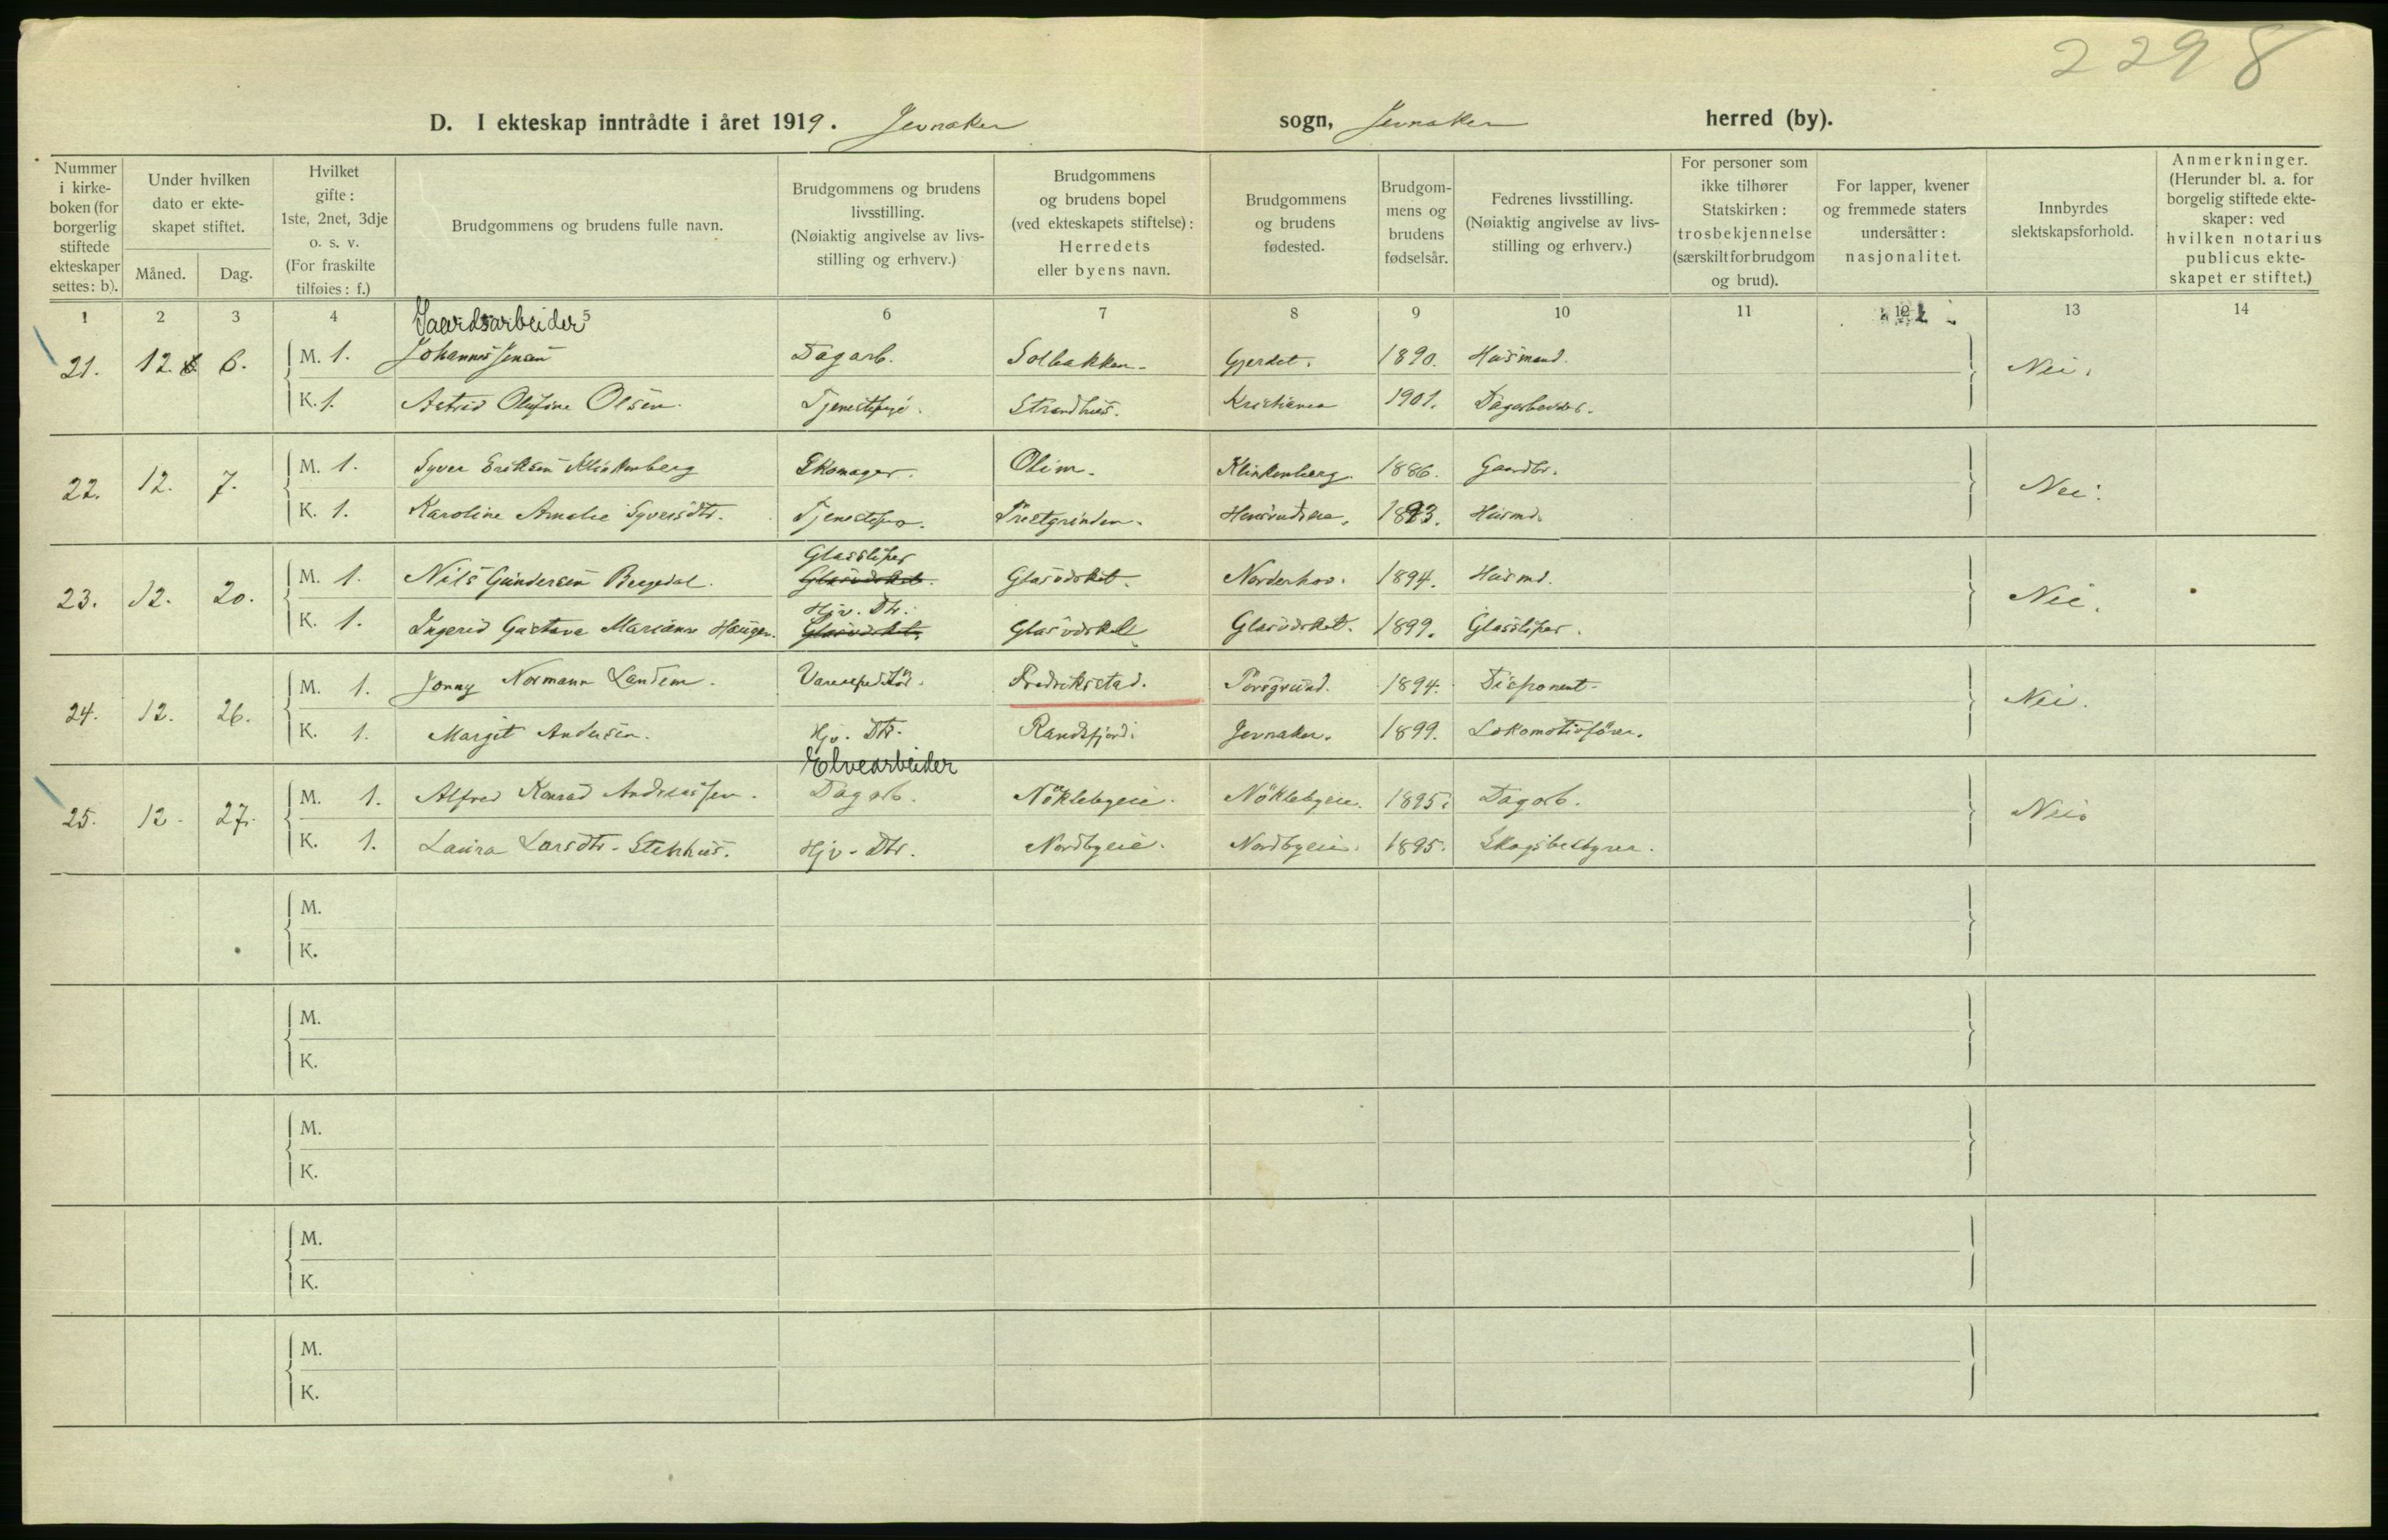 2298
D. I ekteskap inntrådte i året 1919. Jevnaker sogn, Jevnaker herred (by).
Nummer i kirke- boken (for borgerlig stiftede ekteskaper settes: b).
Under hvilken dato er ekte- skapet stiftet.
Måned. Dag.
Hvilket gifte: 1ste, 2net, 3dje o. s. v. (For fraskilte tilføies: f.)
Brudgommens og brudens fulle navn.
Brudgommens og brudens livsstilling. (Nøiaktig angivelse av livs- stilling og erhverv.)
Brudgommens og brudens bopel (ved ekteskapets stiftelse): Herredets eller byens navn.
Brudgommens og brudens fødested.
Brudgom- mens og brudens fødselsår.
Fedrenes livsstilling. (Nøiaktig angivelse av livs- stilling og erhverv.)
For personer som ikke tilhører Statskirken: trosbekjennelse (særskilt for brudgom og brud).
For lapper, kvener og fremmede staters undersåtter: nasjonalitet.
Innbyrdes slektskapsforhold.
Anmerkninger. (Herunder bl. a. for borgelig stiftede ekte- skaper: ved hvilken notarius publicus ekte- skapet er stiftet.)
1 2 3 4 5 6 7 8 9 10 11 12 13 14
Gaardsarbeider
21. 12. 6. M. 1. Johannes Jensen Dagarb. Solbakken. Gjerdet. 1890. Husmand. Nei.
K. 1. Astrid Olufine Olsen. Tjenestepige. Strandhus. Kristiania 1901. Dagarbeider.
22. 12. 7. M. 1. Syver Eriksen Klinkenberg Skomager. Olim. Klinkenberg. 1886. Gaardbr. Nei.
K. 1. Karoline Amalie Syversdtr. Tjenestepa. Prestgrinden. 1893. Husmd.
Glassliper
23. 12. 20. M. 1. Nils Gundersen Bergedal. Glasvdrket. Glasvdrket. Norderhov. 1894. Husmd. Nei.
Hjv. Dtr.
K. 1. Ingerid Gustava Marianne Haugen. Glasvdrket. Glasvdrket. Glasvdrket. 1899. Glassliper.
24. 12. 26. M. 1. Jonny Normann Landem. Vareexpeditör. Fredriksstad. Porsgrund. 1894. Disponent. Nei.
K. 1. Margit Andersen. Hjv. Dtr. Randsfjord. Jevnaker. 1899. Lokomotivförer.
Elvearbeider
25. 12. 27. M. 1. Alfred Konrad Andreassen. Dagarb. Nöklebyeie. Nöklebyeie. 1895. Dagarb. Nei.
K. 1. Laura Larsdtr. Stenhus. Hjv. Dtr. Nordbyeie. Nordbyeie. 1895. Skogsbestyrer.
M.
K.
M.
K.
M.
K.
M.
K.
M.
K.